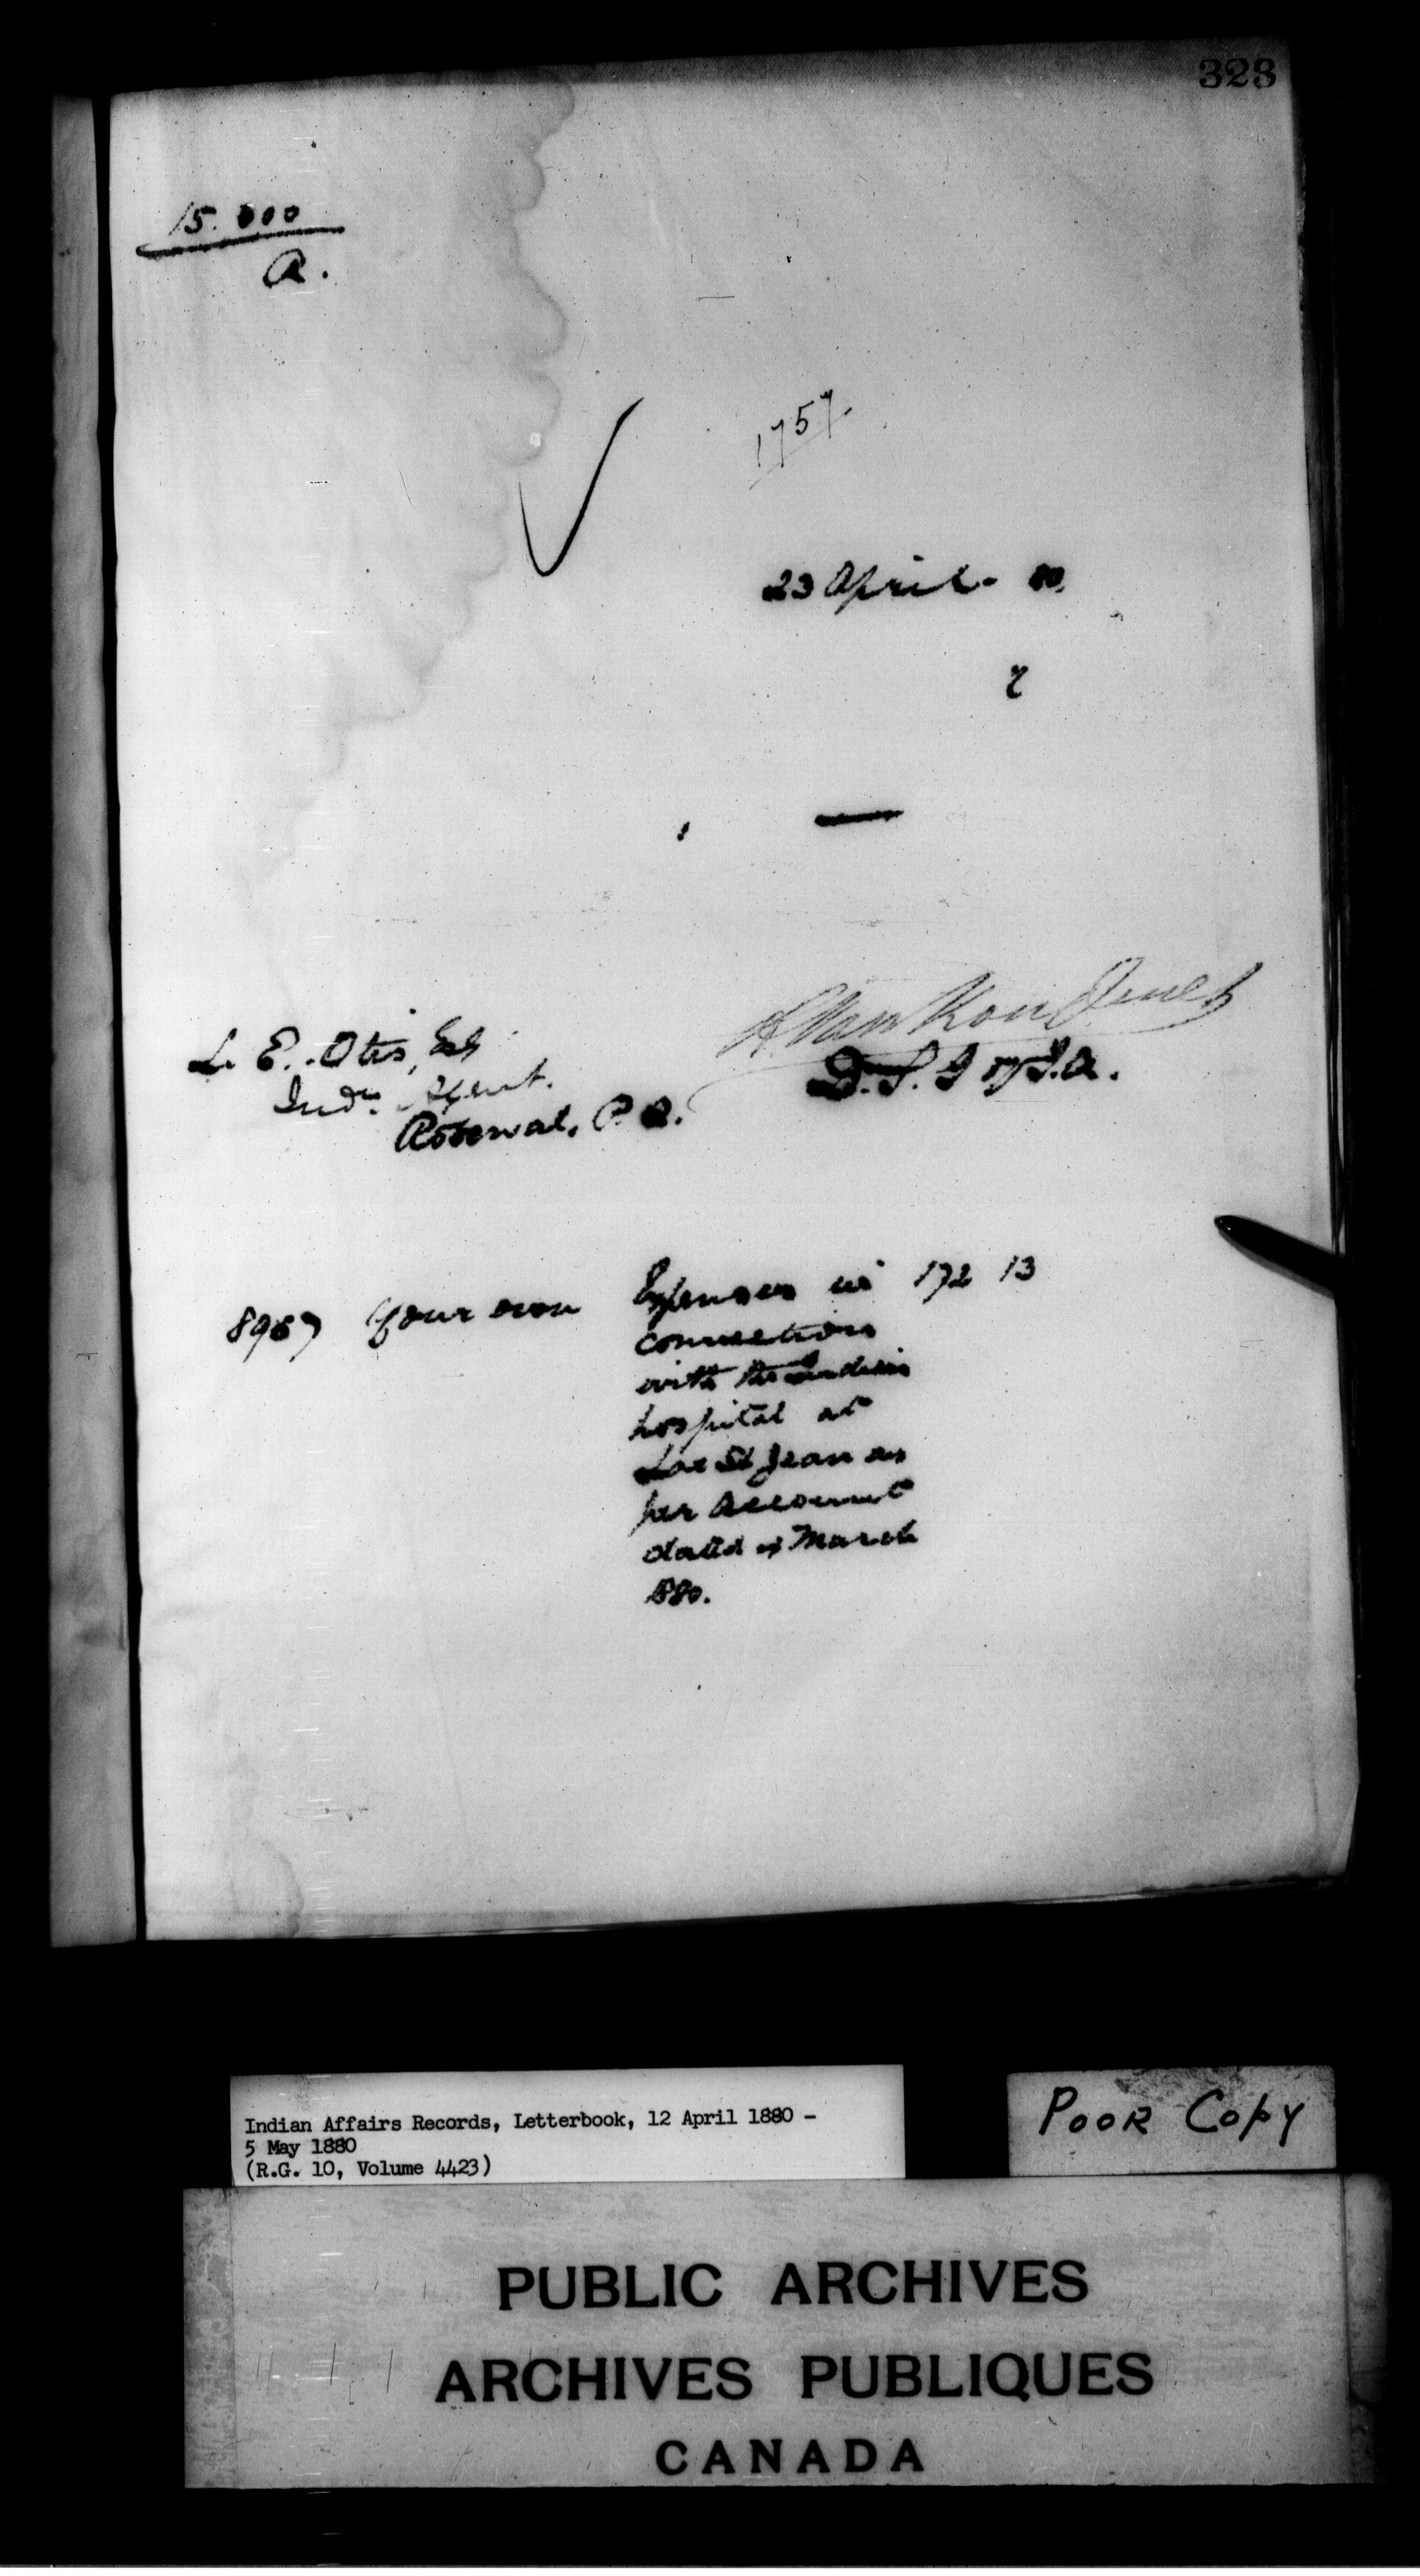 323
15.000
A.
1757
23 April 80.
L. E. Otis, Esq
Indn. Agent.
Roberval, P. Q.
A VanKoughnet
D. S. G of I. A.
8967 Your own Expenses in 172 13
connection
with the Indian
hospital at
Lac St Jean as
per account
dated March
1880.
Indian Affairs Records, Letterbook, 12 April 1880 -
5 May 1880
(R.G. 10, Volume 4423)
POOR COPY
PUBLIC ARCHIVES
ARCHIVES PUBLIQUES
CANADA